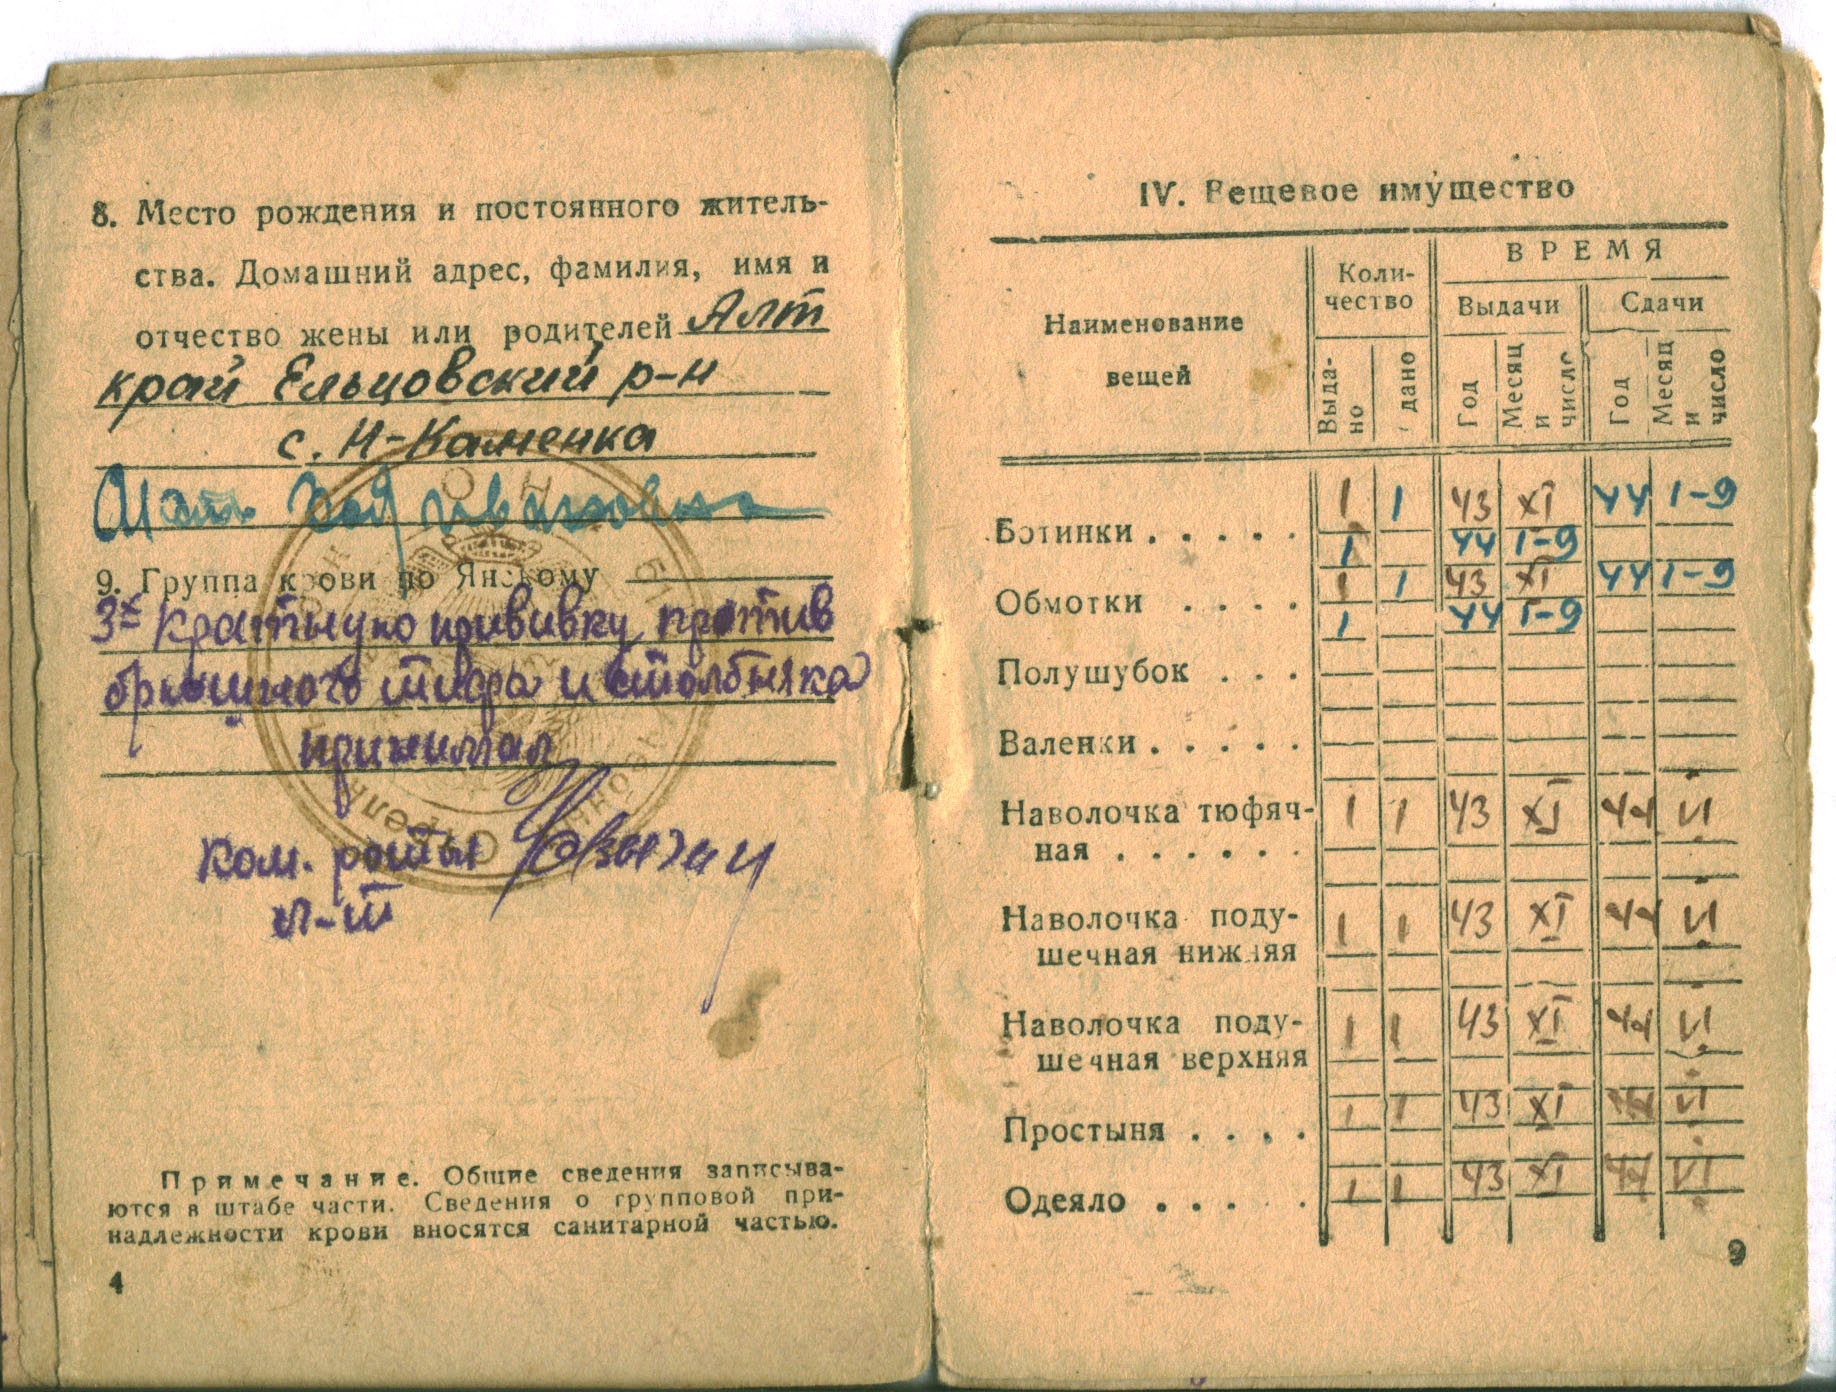 8. Место рождения и постоянного житель-
ства. Домашний адрес, фамилия, имя и
отчество жены или родителей Алт
край Ельцовский р-н
с. Н-Каменка
Мать Ивановна
9. Группа крови по Янскому
3х кратную прививку против
брюшного тифа и столбняка
принимал
Ком. роты
л-т
Примечание. Общие сведения записыва-
ются в штабе части. Сведения о групповой при-
надлежности крови вносятся санитарной частью.
4
IV. Вещевое имущество
Наименование вещей
Коли-
чество
ВРЕМЯ
Выдачи Сдачи
Выда-
но
дано
Год
Месяц и число
Год
Месяц и число
1 1 43 XI 44 1-9
Ботинки . . . . .
1 44 1-9
1 1 43 XI 44 1-9
Обмотки . . . .
1 44 1-9
Полушубок . . .
Валенки . . . . .
Наволочка тюфяч- 1 1 43 XI 44 VI
ная . . . . . .
Наволочка поду- 1 1 43 XI 44 VI
шечная нижняя
Наволочка поду- 1 1 43 XI 44 VI
шечная верхняя
Простыня . . . . 1 1 43 XI 44 VI
Одеяло . . . . . 1 1 43 XI 44 VI
9